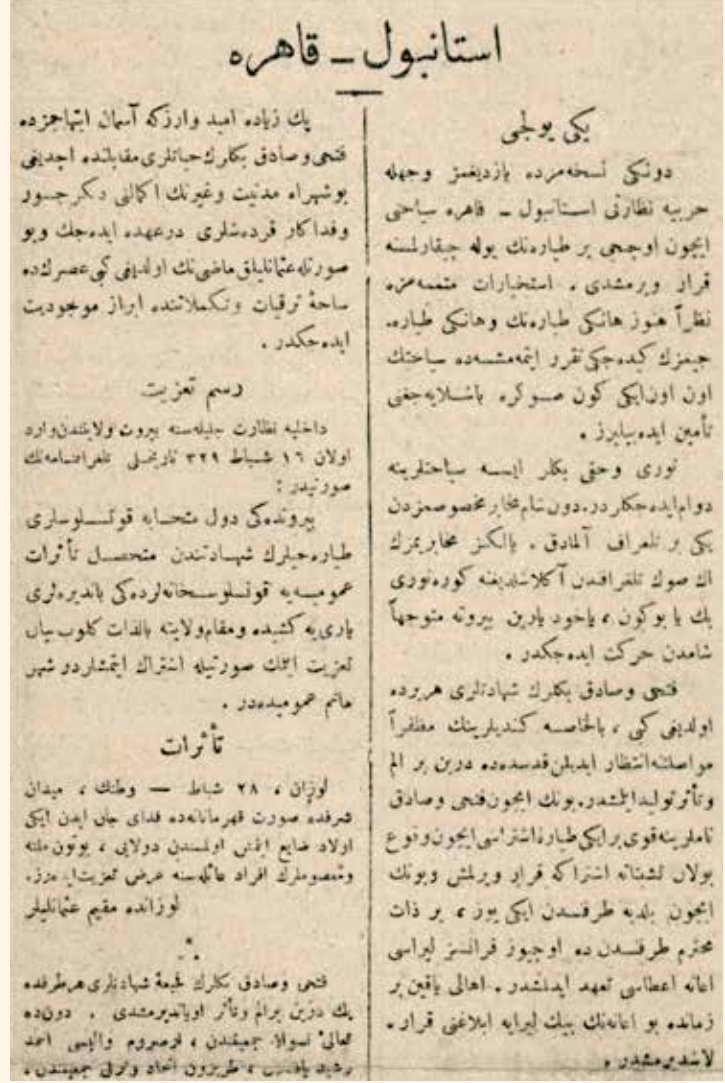 استانبول ـ قاهره
یکی یولجی
دونکی نسخه‌مزده یازدیغمز وجهله
حربیه نظارتی استانبول ـ قاهره سیاحتی
ایچون اوچنجی بر طیاره‌نك یوله چیقارلمسنه
قرار ویرمشدی . استخبارات متممه‌مزه
نظراً هنوز هانکی طیاره‌نك وهانکی طیاره‌
جیمزك کیده‌جکی تقرر ایتمه‌مشسه‌ده سیاحتك
اون اون‌ایکی کون صوکره باشلایه‌جغی
تأمین ایده‌بیلیرز .
نوری وحقی بکلر ایسه سیاحتلرینه
دوام‌ایده‌جکلردر. دون شام مخابر مخصوصمزدن
یکی بر تلغراف آلمادق . یالکز مخابریمزك
اك صوك تلغرافندن آکلاشلدیغنه کوره نوری
بك یا بوکون ، یاخود یارین بیروته متوجهاً
شامدن حرکت ایده‌جکدر .
فتحی وصادق بکلرك شهادتلری هریرده
اولدیغی کبی ، بالخاصه کندیلرینك مظفراً
مواصلتنه انتظار ایدیلن قدسده‌ده درین بر الم
وتأثر تولید ایلمشدر. بونك ایچون فتحی وصادق
ناملرینه قوی بر ایکی طیاره اشتراسی ایچون وقوع
بولان تشبثاته اشتراکه قرار ویرلمش وبونك
ایچون بلدیه طرفندن ایکی یوز ، بر ذات
محترم طرفندن ده اوچیوز فرانسز لیراسی
اعانه اعطاسی تعهد ایدلمشدر . اهالی یاقین بر
زمانده بو اعانه‌نك بیك لیرایه ابلاغنی قرار ـ
لاشدیرمشدر .
پك زیاده امید وارزکه آسمان ابتهاجمزده
فتحی وصادق بکلرك حیاتلری مقابلنده آچدیغی
بو شهراه مدنیت وغیرتك اکمالنی دیکر جسور
وفداکار قرده‌شلری درعهده ایده‌جك وبو
صورتله عثمانلیلق ماضی‌نك اولدیغی کبی عصرك‌ده
ساحهٔ ترقیات وتکملاتنده ابراز موجودیت
ایده‌جکدر .
رسم تعزیت
داخلیه نظارت جلیله‌سنه بیروت ولایتندن وارد
اولان ١٦ شباط ٣٢٩ تاریخلی تلغرافنامه‌نك
صورتیدر :
بیروتده‌کی دول متحابه قونسلوسلری
طیاره‌جیلرك شهادتندن متحصل تأثرات
عمومیه‌یه قونسلوسخانه‌لرده‌کی باندیره‌لری
یاری‌یه کشیده ومقام ولایته بالذات کلوب بیان
تعزیت ایتمك صورتیله اشتراك ایتمشلردر شهر
ماتم عمومیده‌در .
تأثرات
لوزان ، ٢٨ شباط — وطنك ، میدان
شرفده صورت قهرمانانه‌ده فدای جان ایدن ایکی
اولاد ضایع ایتمش اولمسندن دولایی ، بوتون ملته
ومعصوملرك افراد عائله‌سنه عرض تعزیت ایده‌رز.
لوزانده مقیم عثمانلیلر
فتحی وصادق بکلرك فجیعهٔ شهادتلری هر طرفده
پك درین بر الم وتأثر اویاندیرمشدی . دون‌ده
تعالیٔ نسوان جمعیتندن ، ارضروم والیسی احمد
رشید پاشادن ، طربزون اتحاد وترقی جمعیتندن ،